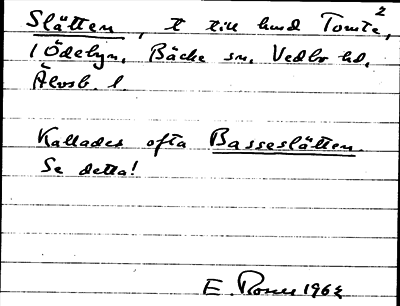 Slätten, t till hmd Tomte²,
1 Ödebyn. Bäcke sn. Vedbo hd.
Älvsb. l.
Kallades ofta Basseslätten.
Se detta!
E 1964